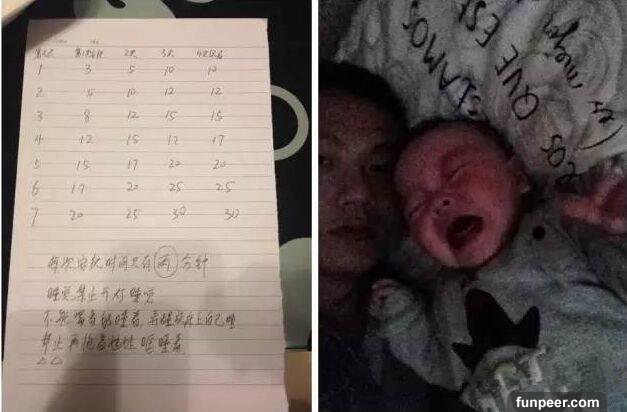 第几天 第1次安抚 2次 3次 4次以后
1 3 5 10 12
2 5 10 12 12
3 8 12 15 15
4 12 15 17 17
5 15 17 20 20
6 17 20 25 25
7 20 25 30 30
每次安抚时间只有(两)分钟
睡觉禁止开灯睡觉
不能 着 睡着 自己睡
禁止再抱着 睡着
AMOS
OS QUE ES
funpeer.com